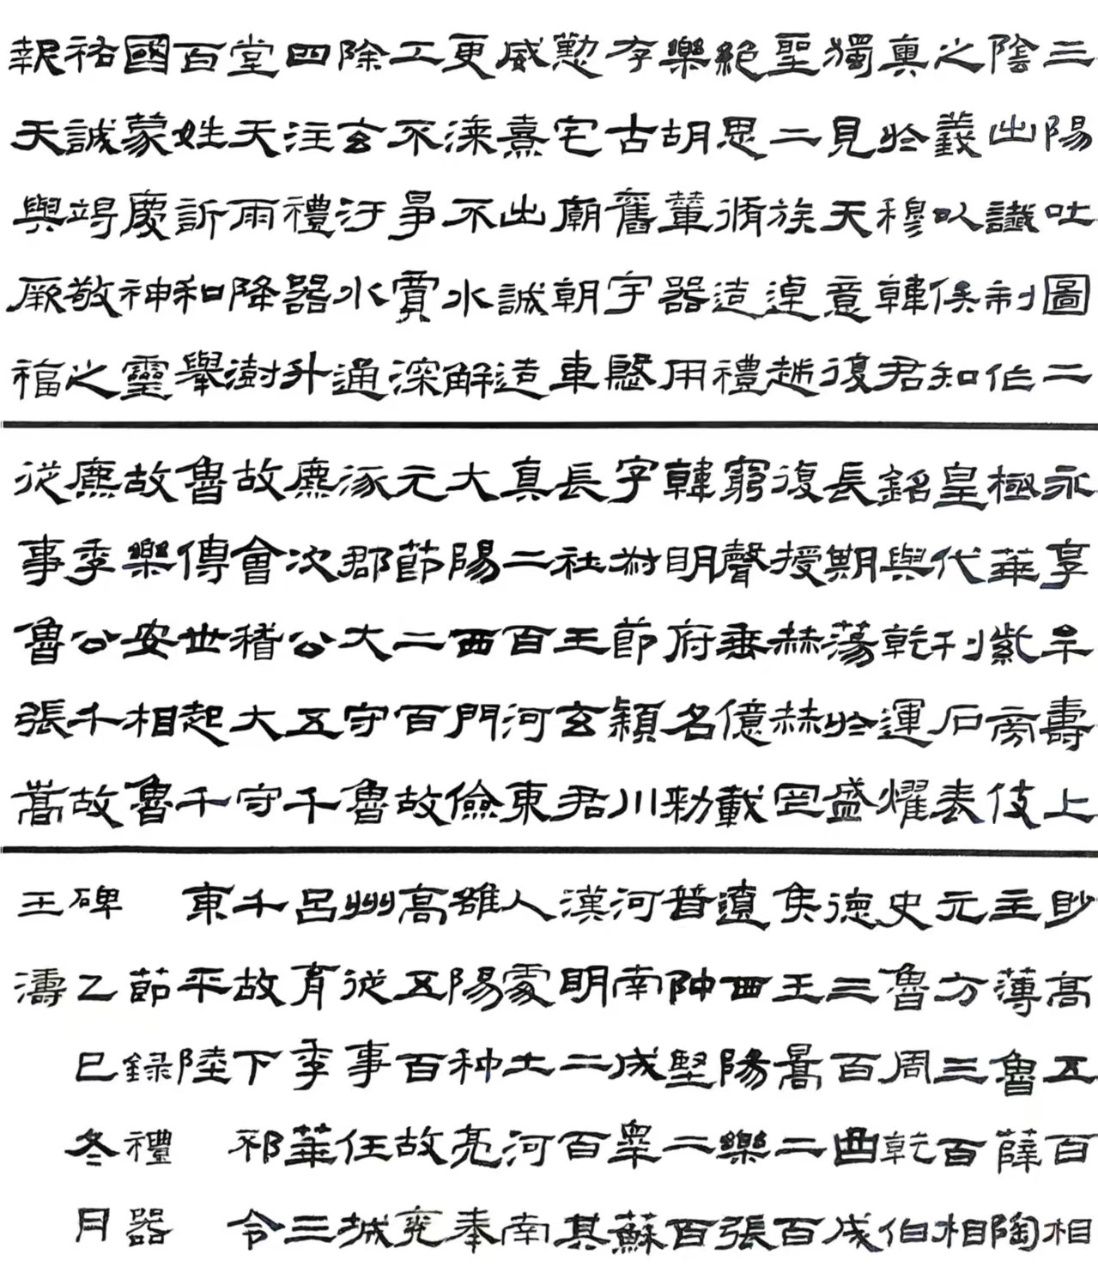 三陽吐圖二
陰出讖制作
之義以俟知
真於穆韓君
獨見天意復
聖二族逴越
絕思脩造禮
樂胡輦器用
存古舊宇殹
懃宅廟朝車
威熹出誠造
更漆不水解
工不爭賈深
除玄汙水通
四注禮器升
堂天雨降澍
百姓訢和舉
國蒙慶神靈
祐誠竭敬之
報天與厥福
永享牟壽上
極華紫旁伎
皇代刊石表
銘與乾運燿
長期蕩於盛
復授赫赫罔
窮聲垂億載
韓明府名勑
字叔節穎川
長社王玄君
真二百河東
大陽西門儉
元節二百故
涿郡大守魯
麃次公五千
故會稽大守
魯傅世起千
故樂安相魯
麃季公千故
從事魯張嵩
眇高五百相
主薄魯薛陶
元方三百相
史魯周乾伯
德三百曲成
侯王暠二百
遼西陽樂張
普仲堅二百
河南成睪蘇
漢明二百其
人處土河南
雒陽种亮奉
高五百故兖
州從事任城
呂育季華三
千故下祁令
東平陸
節錄禮器
碑乙巳冬月
王濤